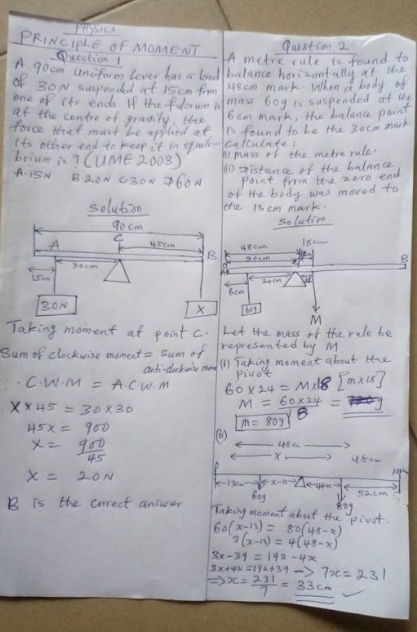 Physics
PRINCIPLE OF MOMENT
Question 1
A 90cm uniform lever has a load
of 30N suspended at 15cm from
one of its ends. If the fulcrum is
at the centre of gravity, the
force that must be applied at
its other end to keep it in equili-
brium is? (UME 2003)
A.15N B.20N C.30N D.60N
Solution
90cm
A C 45cm B
15cm 30cm
30N X
Taking moment at point C.
Sum of clockwise moment = Sum of
anti-clockwise moment
C.W.M = A.C.W.M
X x 45 = 30x30
45x = 900
X = 900
45
X = 20N
B is the correct answer
Question 2
A metre rule is found to
balance horizontally at the
48cm mark. When a body of
mass 60g is suspended at the
6cm mark, the balance point
is found to be the 30cm mark
Calculate:
(i) Mass of the metre rule.
(ii) Distance of the balance
point from the zero end
of the body was moved to
the 13cm mark.
Solution
48cm
30cm
A B
6cm 24cm
60g
M
Let the mass of the rule be
represented by M
(i) Taking moment about the
pivot
60x24 = Mx18 [mx18]
M = 60x24
18
M = 80g
(ii)
48cm
X 48cm
13cm x-13 52cm
60g 80g
Taking moment about the pivot.
60(x-13) = 80(48-x)
3(x-13) = 4(48-x)
3x-39 = 192-4x
3x+4x=192+39 → 7x=231
⇒ x = 231 = 33cm
7